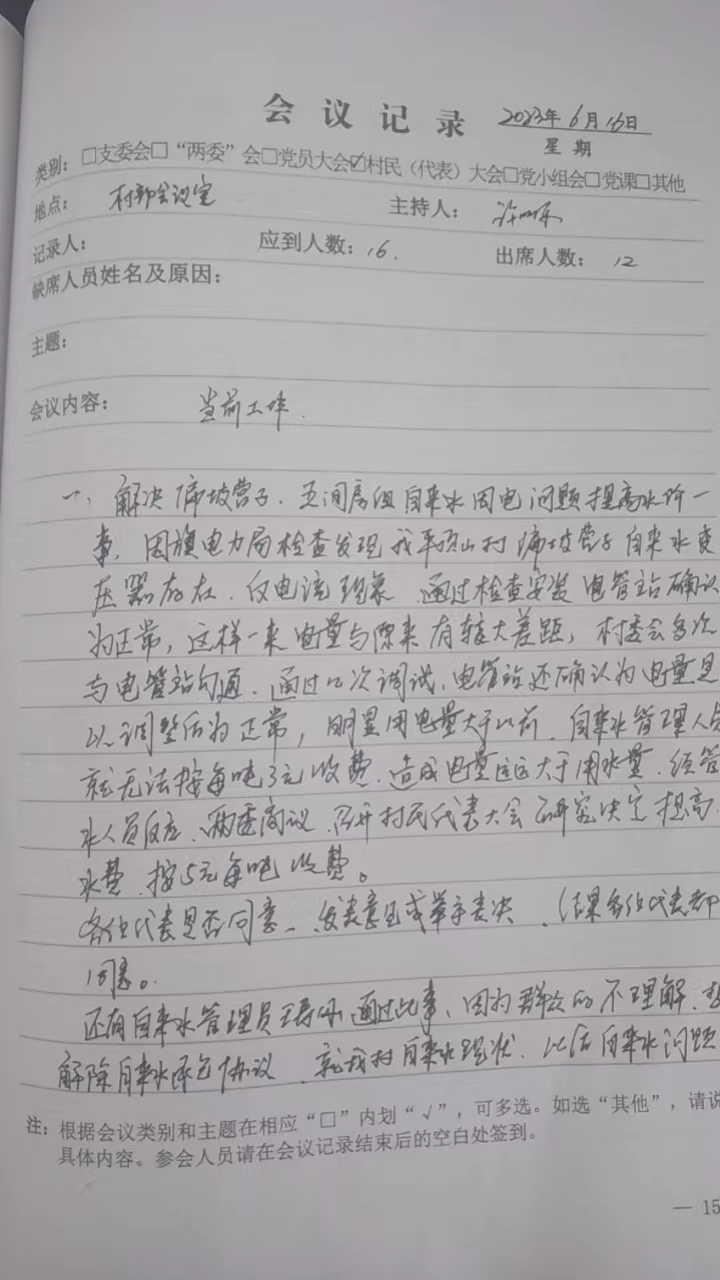 会议记录 2023年6月15日
星期
类别：□支委会□“两委”会□党员大会☑村民（代表）大会□党小组会□党课□其他
地点： 村部会议室 主持人：
记录人： 应到人数：16. 出席人数：12
缺席人员姓名及原因：
主题：
会议内容： 当前工作.
一、解决 坡营子.五间房组自来水因电问题提高水价一
事，因旗电力局检查发现我平顶山村 坡营子自来水变
压器存在.仅电流现象.通过检查安装电管站确认
为正常，这样一来电量与原来有较大差距，村委会多次
与电管站勾通.通过几次调试，电管站还确认为电量是
以调整后为正常，明显用电量大于以前.自来水管理人员
就无法按每吨3元收费.造成电量远远大于用水量.经管
水人员反应.两委商议.召开村民代表大会研究决定提高
水费.按5元每吨收费。
各位代表是否同意、发表意见或举手表决.结果各位代表都
同意。
还有自来水管理员 通过此事、因为群众的不理解.
解除自来水承包协议.就我村自来水现状.以后自来水问题
注：根据会议类别和主题在相应“□”内划“√”，可多选。如选“其他”，请说
具体内容。参会人员请在会议记录结束后的空白处签到。
— 15